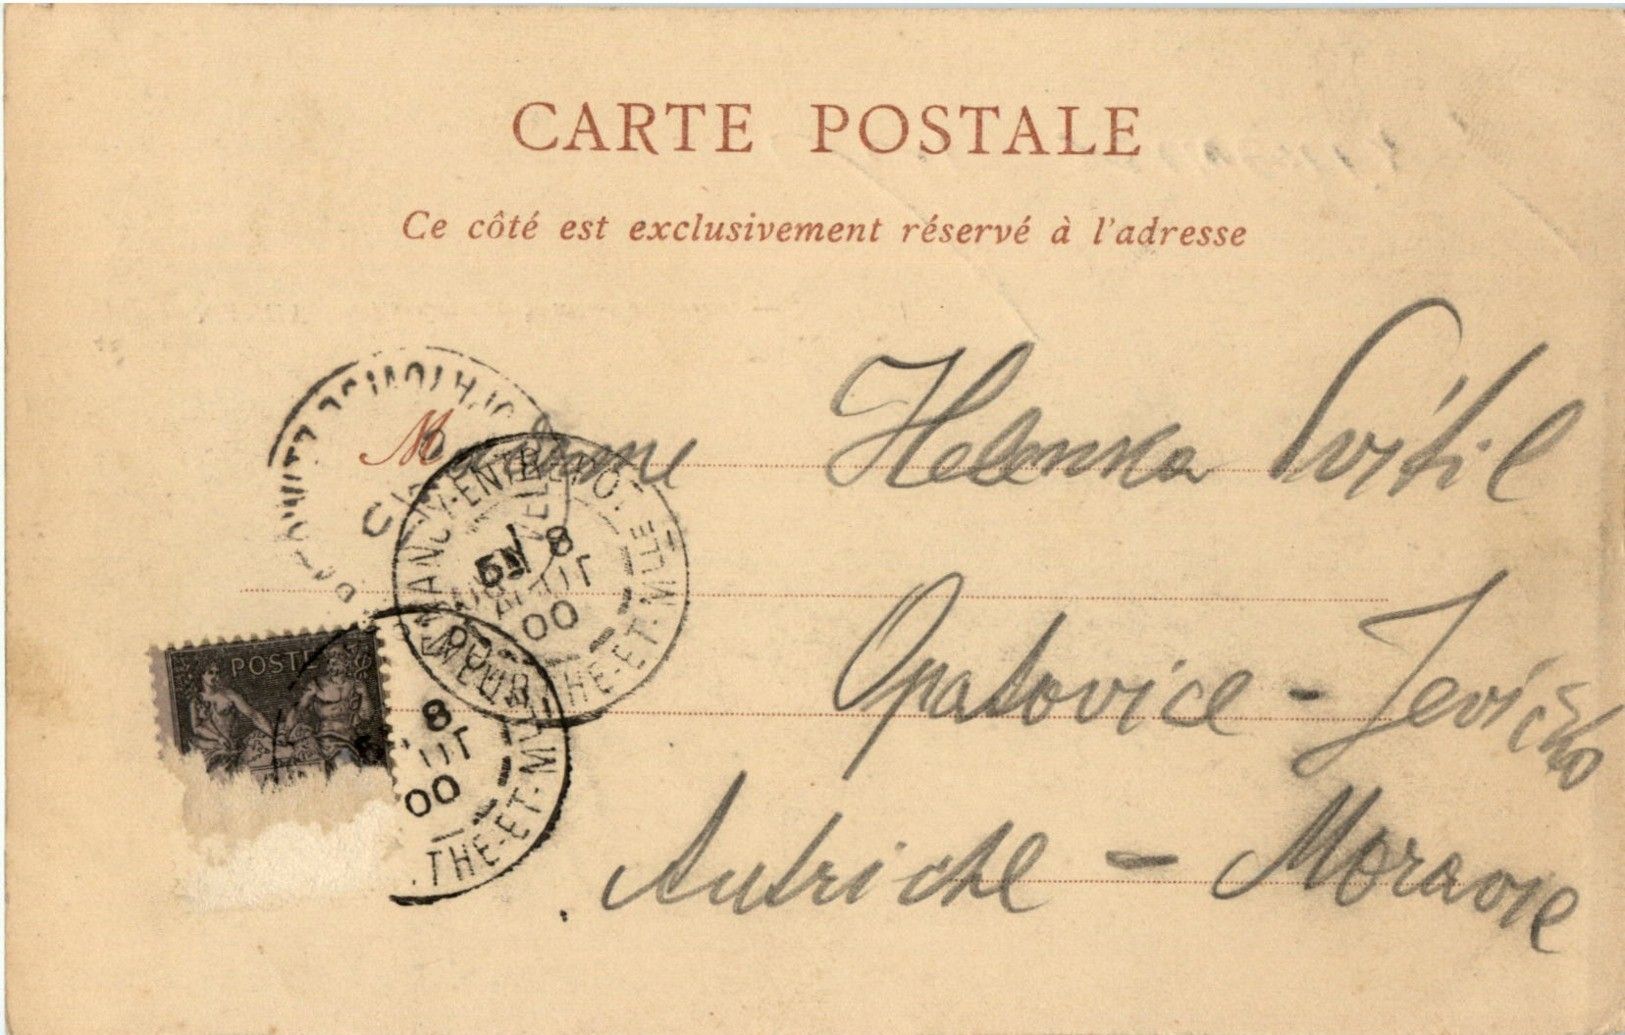 CARTE POSTALE
Ce côté est exclusivement réservé à l'adresse
Madame Helenka Svítil
Opatovice - Jevíčko
Autriche - Moravie
POSTE
NANCY-ENTREPOT
MEURTHE-ET-MLLE
8
AOUT
00
8
00
THE-ET-MLLE